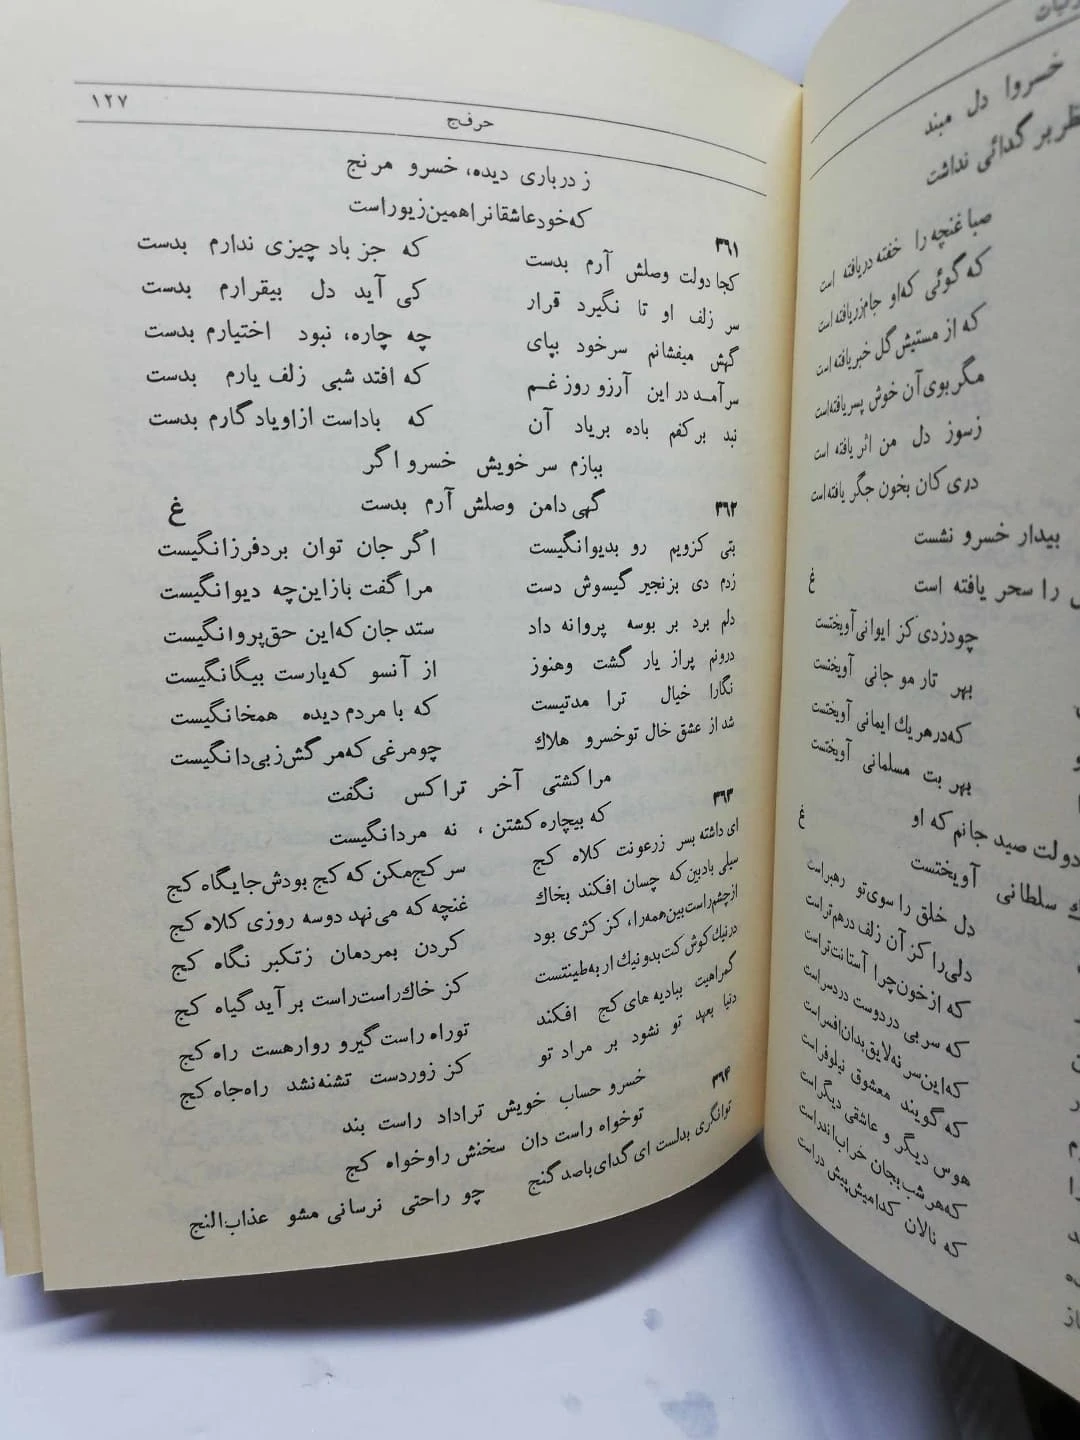 ۱۲۷
حرف‌ج
ز درباری دیده، خسرو مرنج
که‌خودعاشقانراهمین‌زیوراست
۳۶۱
کجا دولت وصلش آرم بدست که جز باد چیزی ندارم بدست
سر زلف او تا نگیرد قرار کی آید دل بیقرارم بدست
گهش میفشانم سرخود بپای چه چاره، نبود اختیارم بدست
سرآمد در این آرزو روز غم که افتد شبی زلف یارم بدست
نبد برکفم باده بریاد آن که باداست ازاویادگارم بدست
ببازم سر خویش خسرو اگر
گهی دامن وصلش آرم بدست
۳۶۲
غ
بتی کزویم رو بدیوانگیست اگر جان توان بردفرزانگیست
زدم دی بزنجیر گیسوش دست مراگفت بازاین‌چه دیوانگیست
دلم برد بر بوسه پروانه داد ستد جان که‌این حق‌پروانگیست
درونم پراز یار گشت وهنوز از آنسو که‌یارست بیگانگیست
نگارا خیال ترا مدتیست که با مردم دیده همخانگیست
شد از عشق خال توخسرو هلاك چومرغی‌که‌مرگش‌زبی‌دانگیست
مراکشتی آخر تراکس نگفت
که بیچاره‌کشتن، نه مردانگیست
۳۶۳
ای داشته بسر زرعونت کلاه کج سر کج‌مکن که کج بودش‌جایگاه کج
سیلی بادبین که چسان افکند بخاك غنچه که می‌نهد دوسه روزی کلاه کج
ازچشم‌راست‌بین‌همه‌را، کز کژی بود کردن بمردمان زتکبر نگاه کج
درنیك‌کوش‌کت‌بدونیك‌ار به‌طینتست کز خاك‌راست‌راست برآید گیاه کج
گمراهیت ببادیه‌های کج افکند توراه راست‌گیرو روارهست راه کج
دنیا بعهد تو نشود بر مراد تو کز زوردست تشنه‌نشد راه‌جاه کج
خسرو حساب خویش تراداد راست بند
توخواه راست دان سخنش راوخواه کج
۳۶۴
توانگری بدلست ای گدای‌باصدگنج چو راحتی نرسانی مشو عذاب‌النج
خسروا دل مبند
بر گدائی نداشت
صبا غنچه را خفته دریافته است
که گوئی که‌او جام‌زریافته است
که از مستیش گل خبریافته است
مگربوی‌آن خوش پسریافته‌است
زسوز دل من اثر یافته است
دری کان بخون جگر یافته‌است
بیدار خسرو نشست
را سحر یافته است
غ
چودزدی‌کز ایوانی‌آویختست
بهر تار مو جانی آویختست
که‌درهریك ایمانی آویختست
بهر بت مسلمانی آویختست
دولت صید جانم که او
سلطانی آویختست
غ
دل خلق را سوی‌تو رهبراست
دلی‌را کز آن زلف درهم‌تراست
که ازخون‌چرا آستانت‌تراست
که سر بی دردوست دردسراست
که‌این‌سر نه‌لایق‌بدان‌افسراست
که گویند معشوق نیلوفراست
هوس دیگر و عاشقی دیگراست
که‌هرشب‌بجان خراب‌اندراست
که نالان کدامیش‌پیش دراست